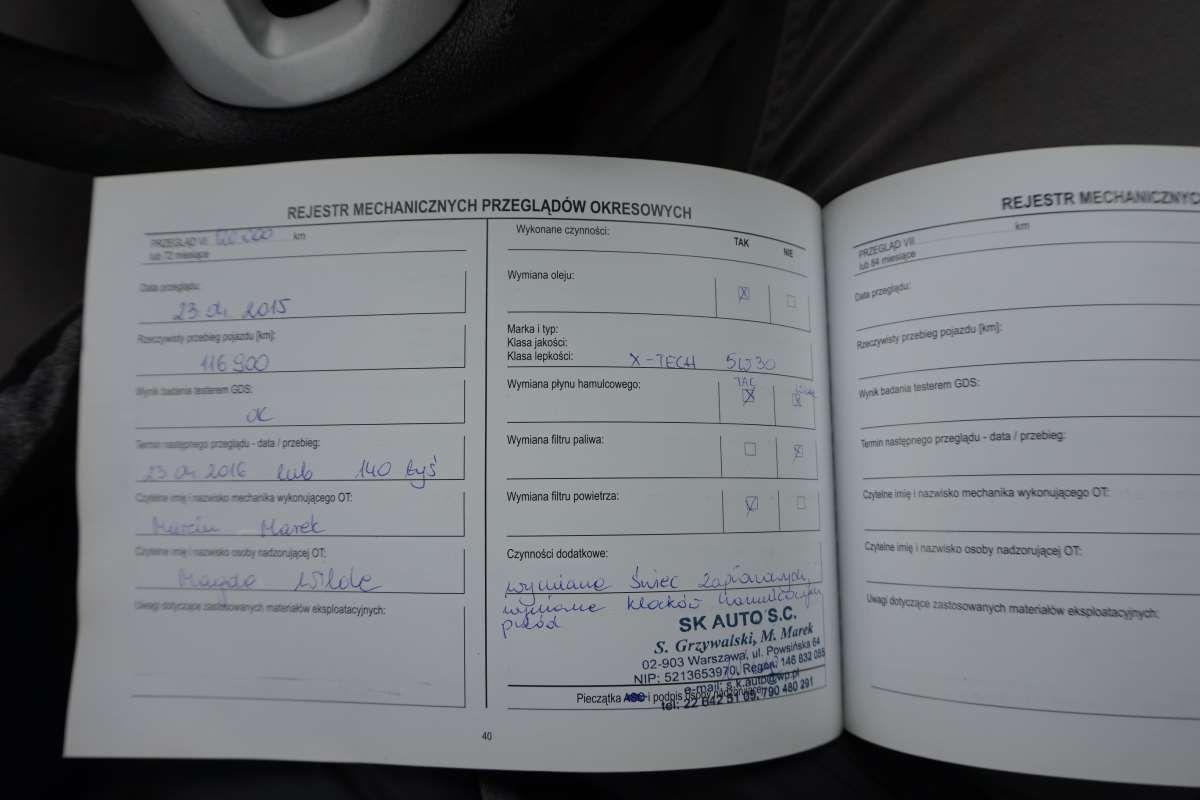 REJESTR MECHANICZNYCH PRZEGLĄDÓW OKRESOWYCH
PRZEGLĄD VI km
lub 72 miesiące
Data przeglądu:
23.04.2015
Rzeczywisty przebieg pojazdu [km]:
116 900
Wynik badania testerem GDS:
OK
Termin następnego przeglądu - data / przebieg:
23.04.2016 lub 140 tyś
Czytelne imię i nazwisko mechanika wykonującego OT:
Marcin Marek
Czytelne imię i nazwisko osoby nadzorującej OT:
Magda Wilde
Uwagi dotyczące zastosowanych materiałów eksploatacyjnych:
Wykonane czynności:
TAK NIE
Wymiana oleju:
X
Marka i typ:
Klasa jakości:
Klasa lepkości: X-TECH 5W30
Wymiana płynu hamulcowego:
TAK
X X
Wymiana filtru paliwa:
X
Wymiana filtru powietrza:
Czynności dodatkowe:
wymiana świec zapłonowych,
wymiana klocków hamulcowych
przód
SK AUTO S.C.
S. Grzywalski, M. Marek
02-903 Warszawa, ul. Powsińska 64
NIP: 5213653970, Regon: 146 832 085
e-mail: s.k.auto@wp.pl
tel: 22 642 51 05, 790 480 291
Pieczątka ASO i podpis osoby nadzorującej
40
REJESTR MECHANICZNYC
PRZEGLĄD VII km
lub 84 miesiące
Data przeglądu:
Rzeczywisty przebieg pojazdu [km]:
Wynik badania testerem GDS:
Termin następnego przeglądu - data / przebieg:
Czytelne imię i nazwisko mechanika wykonującego OT:
Czytelne imię i nazwisko osoby nadzorującej OT:
Uwagi dotyczące zastosowanych materiałów eksploatacyjnych: